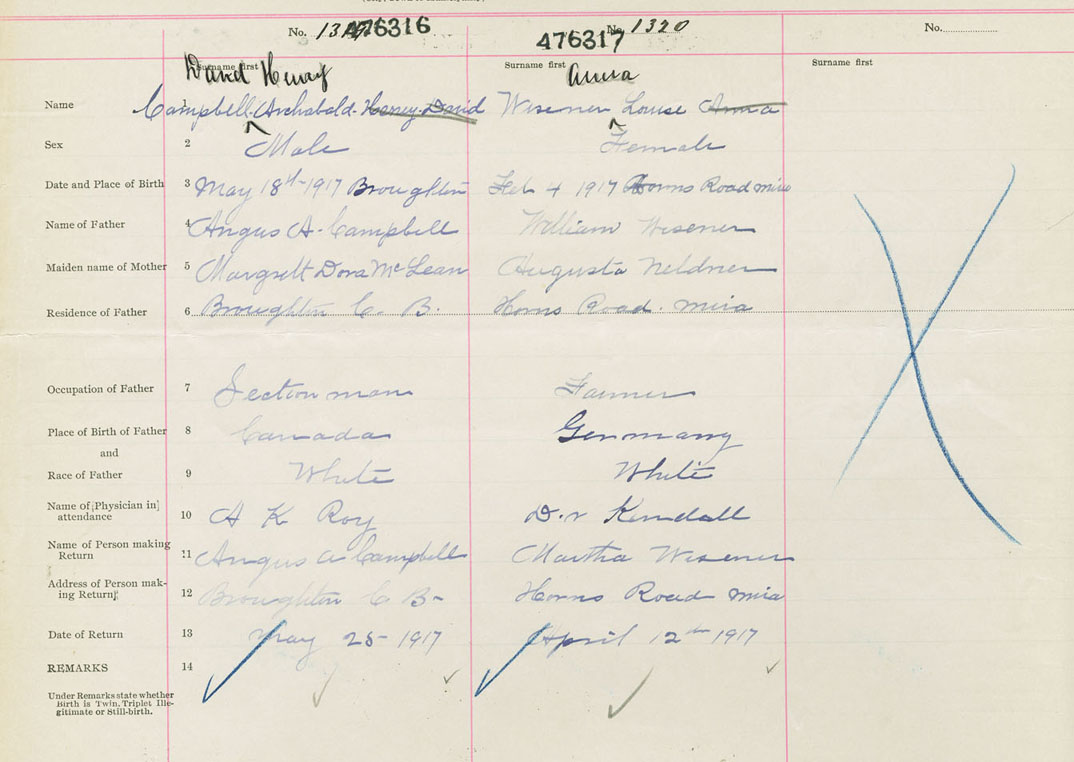 No. 1319 476316
476317 No. 1320
No.
Surname first
Surname first
Surname first
David Henry
Anna
Name 1 Campbell Archabald Harvey David Wisener Louise Anna
Sex 2 Male Female
Date and Place of Birth 3 May 18th 1917 Broughton Feb 4 1917 Horns Road Mira
Name of Father 4 Angus A. Campbell William Wisener
Maiden name of Mother 5 Margrett Dora McLean Augusta Neldner
Residence of Father 6 Broughton C. B. Horns Road. Mira
Occupation of Father 7 Section man Farmer
Place of Birth of Father 8 Canada Germany
and
Race of Father 9 White White
Name of [Physician in]
attendance 10 A K Roy D.r Kendall
Name of Person making
Return 11 Angus A Campbell Martha Wisener
Address of Person mak-
ing Return 12 Broughton C B- Horns Road Mira
Date of Return 13 May 25 1917 April 12th 1917
REMARKS 14
Under Remarks state whether
Birth is Twin, Triplet Ille-
gitimate or Still-birth.